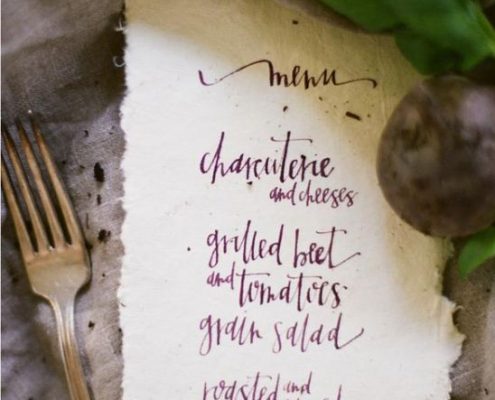 menu
charcuterie
and cheeses
grilled beet
and tomatoes
grain salad
roasted and